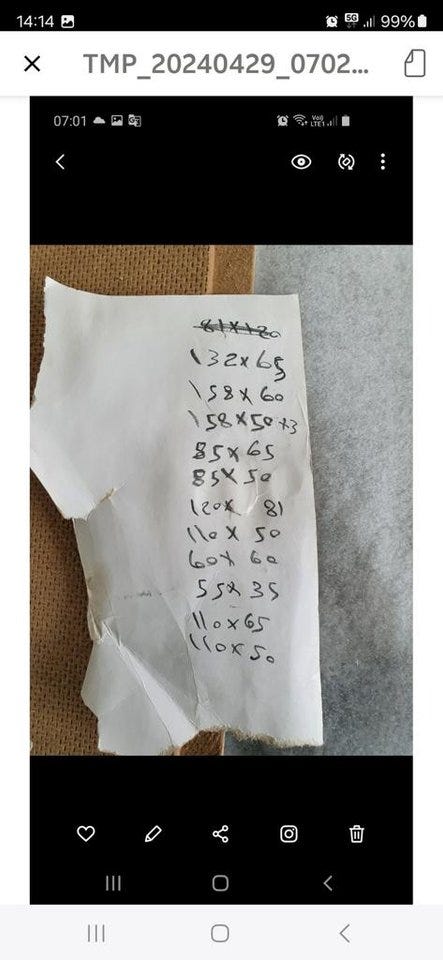 14:14 5G 99%
TMP_20240429_0702...
07:01 Vo) LTE1
81x120
132x65
158x60
158x50+3
85x65
85x50
120x 81
110x50
60x60
55x35
110x65
110x50